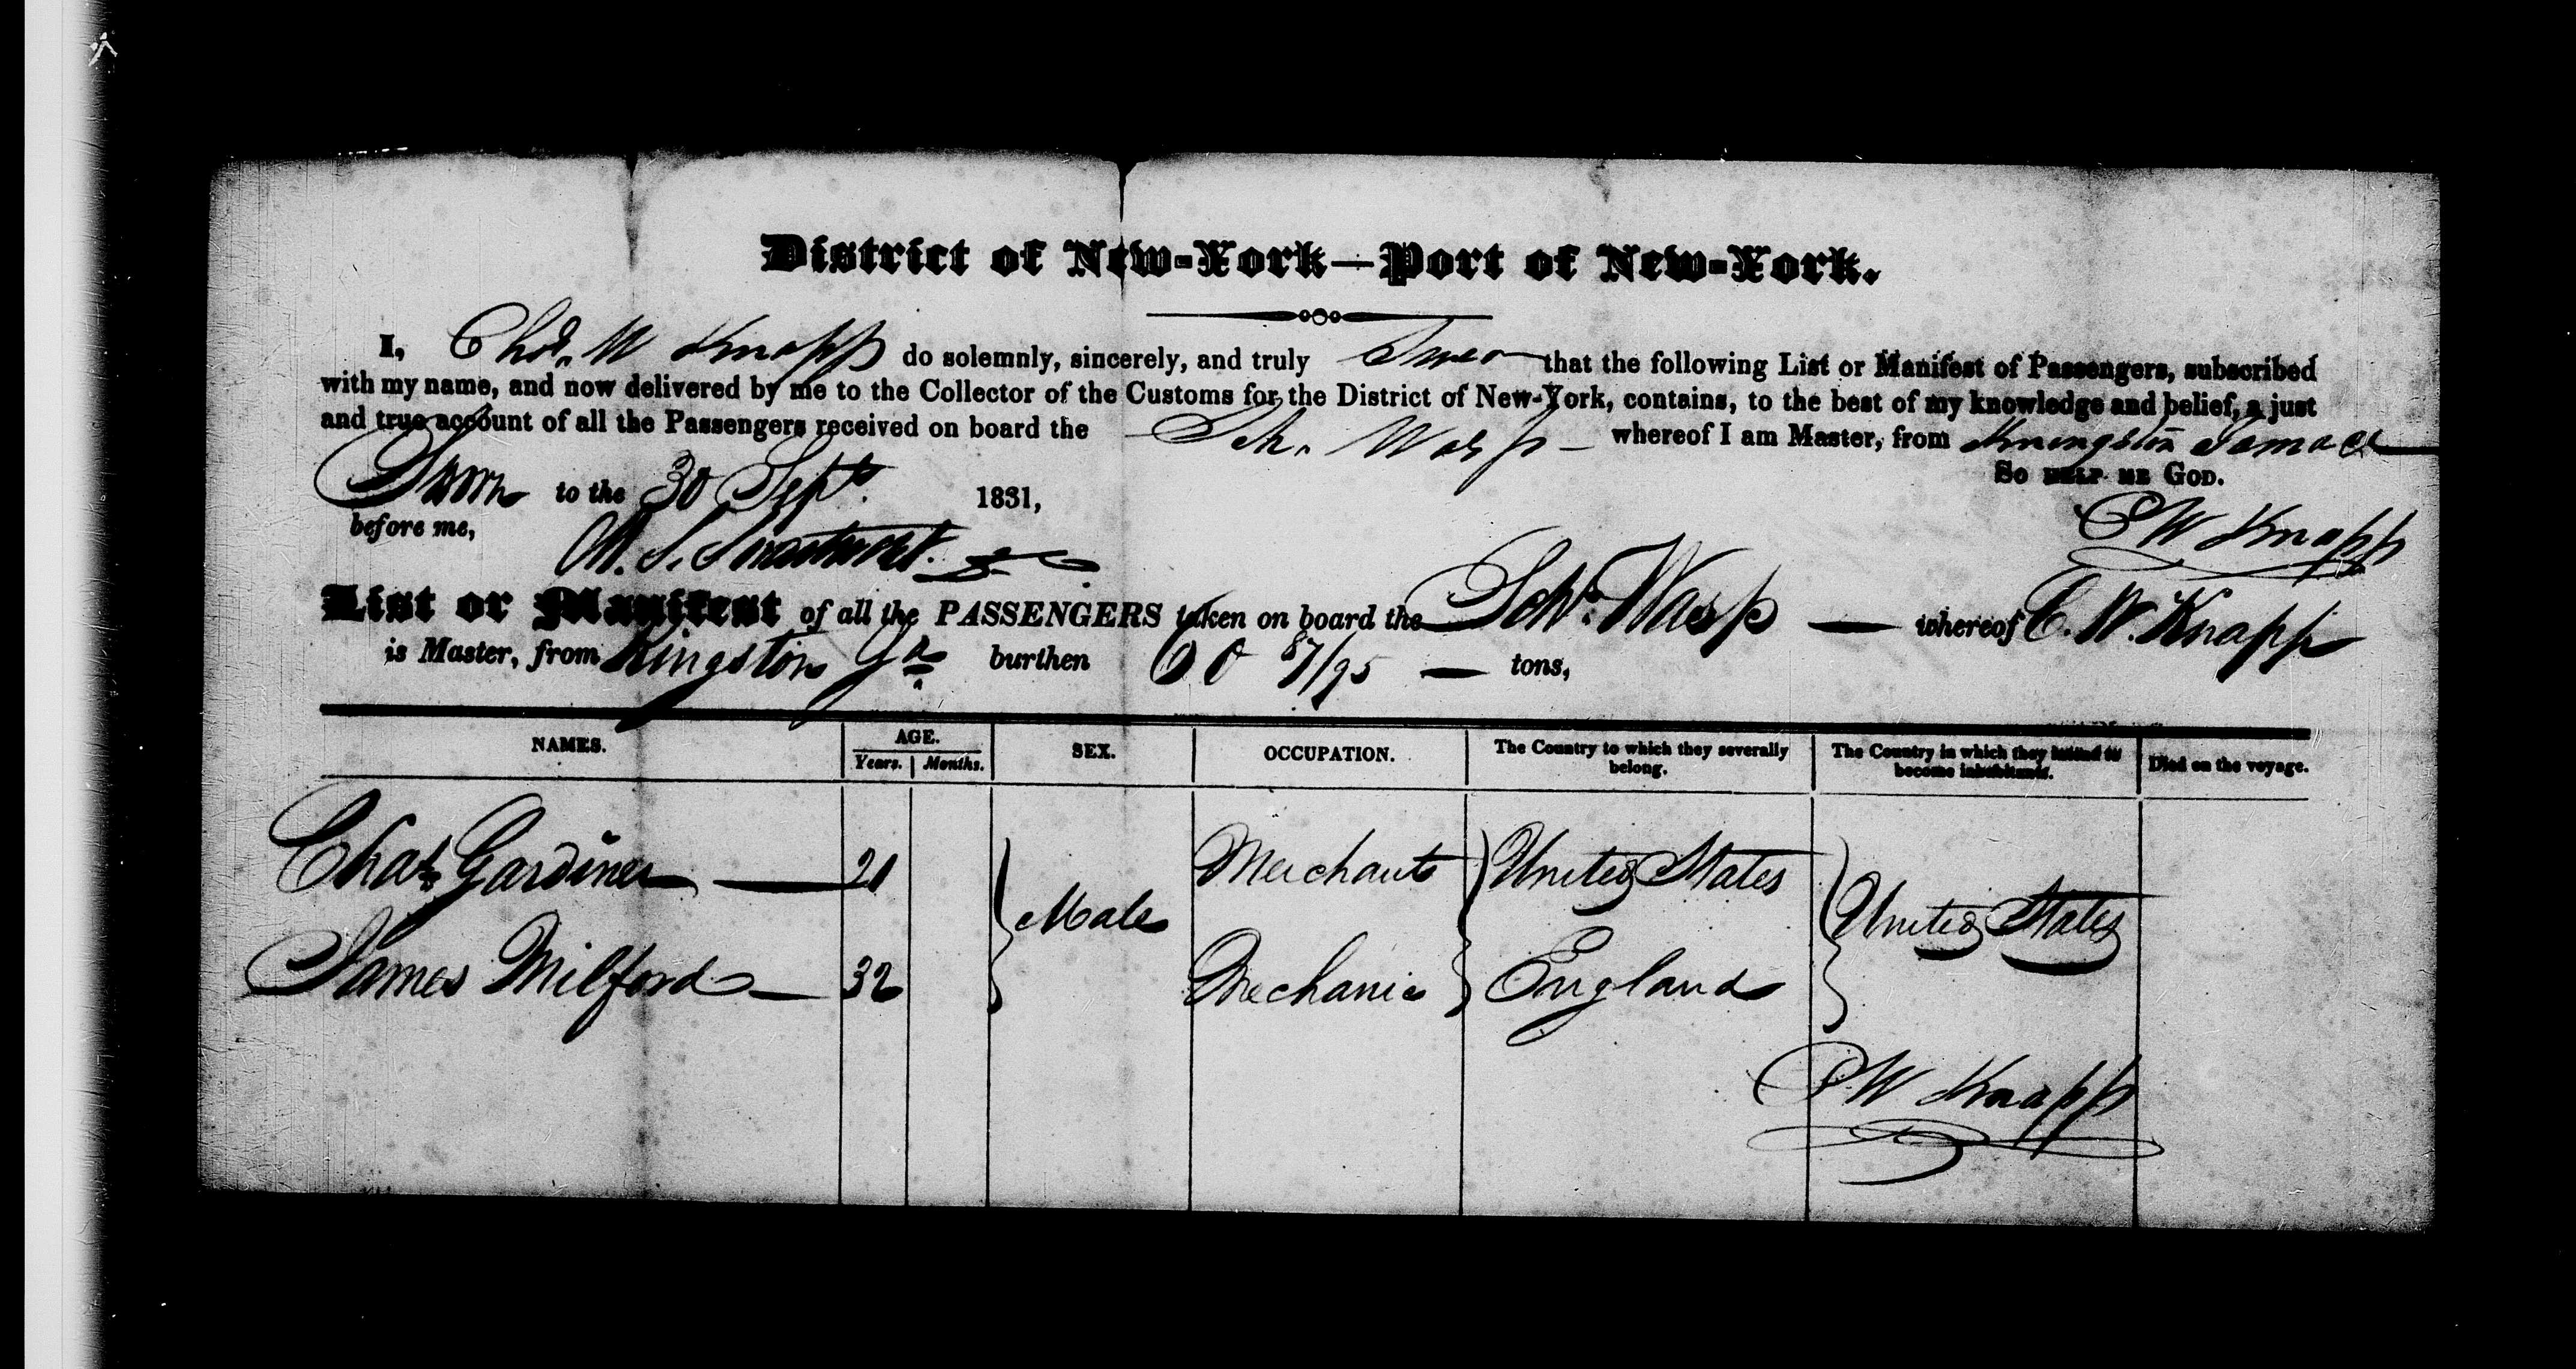 District of New-York—Port of New-York.
I, Chas. W Knapp do solemnly, sincerely, and truly Swear that the following List or Manifest of Passengers, subscribed
with my name, and now delivered by me to the Collector of the Customs for the District of New-York, contains, to the best of my knowledge and belief, a just
and true account of all the Passengers received on board the Sch. Wasp whereof I am Master, from Kningston Jamaca
So HELP ME GOD.
Sworn to the 30 Sept. 1831,
before me,
C W Knapp
M. S. Swartwout.
List or Manifest of all the PASSENGERS taken on board the Schr. Wasp — whereof C. W. Knapp
is Master, from Kingston Ja burthen 60 87/95 — tons,
NAMES. AGE. SEX. OCCUPATION. The Country to which they severally belong. The Country in which they intend to become inhabitants. Died on the voyage.
Years. Months.
Chas. Gardiner — 21 Merchant United States
Male United States
James Milford — 32 Mechanic England
C W Knapp